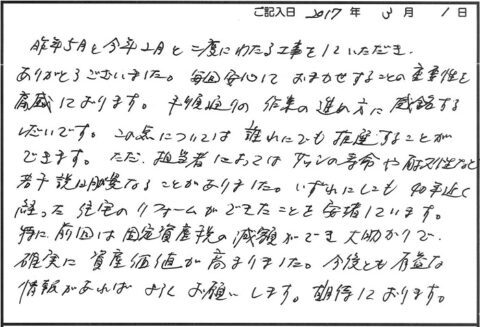 ご記入日 2017 年 3 月 1 日
昨年5月と今年2月と二度にわたる工事をしていただき、
ありがとうございました。毎回安心して おまかせすることの 重要性を
痛感しております。予定通りの 作業の 進め方に 感銘する
しだいです。この点については 誰れにでも 推薦することが
できます。ただ、担当者によっては サッシの寿命や 耐久性など
若干 説明 なることがありました。いずれにしても 40年近く
経った 住宅の リフォームができたことを 安堵しています。
特に 前回は 固定資産税の 減額ができ 大助かりで、
確実に 資産価値が 高まりました。今後とも 有益な
情報があれば よろしく お願いします。期待しております。